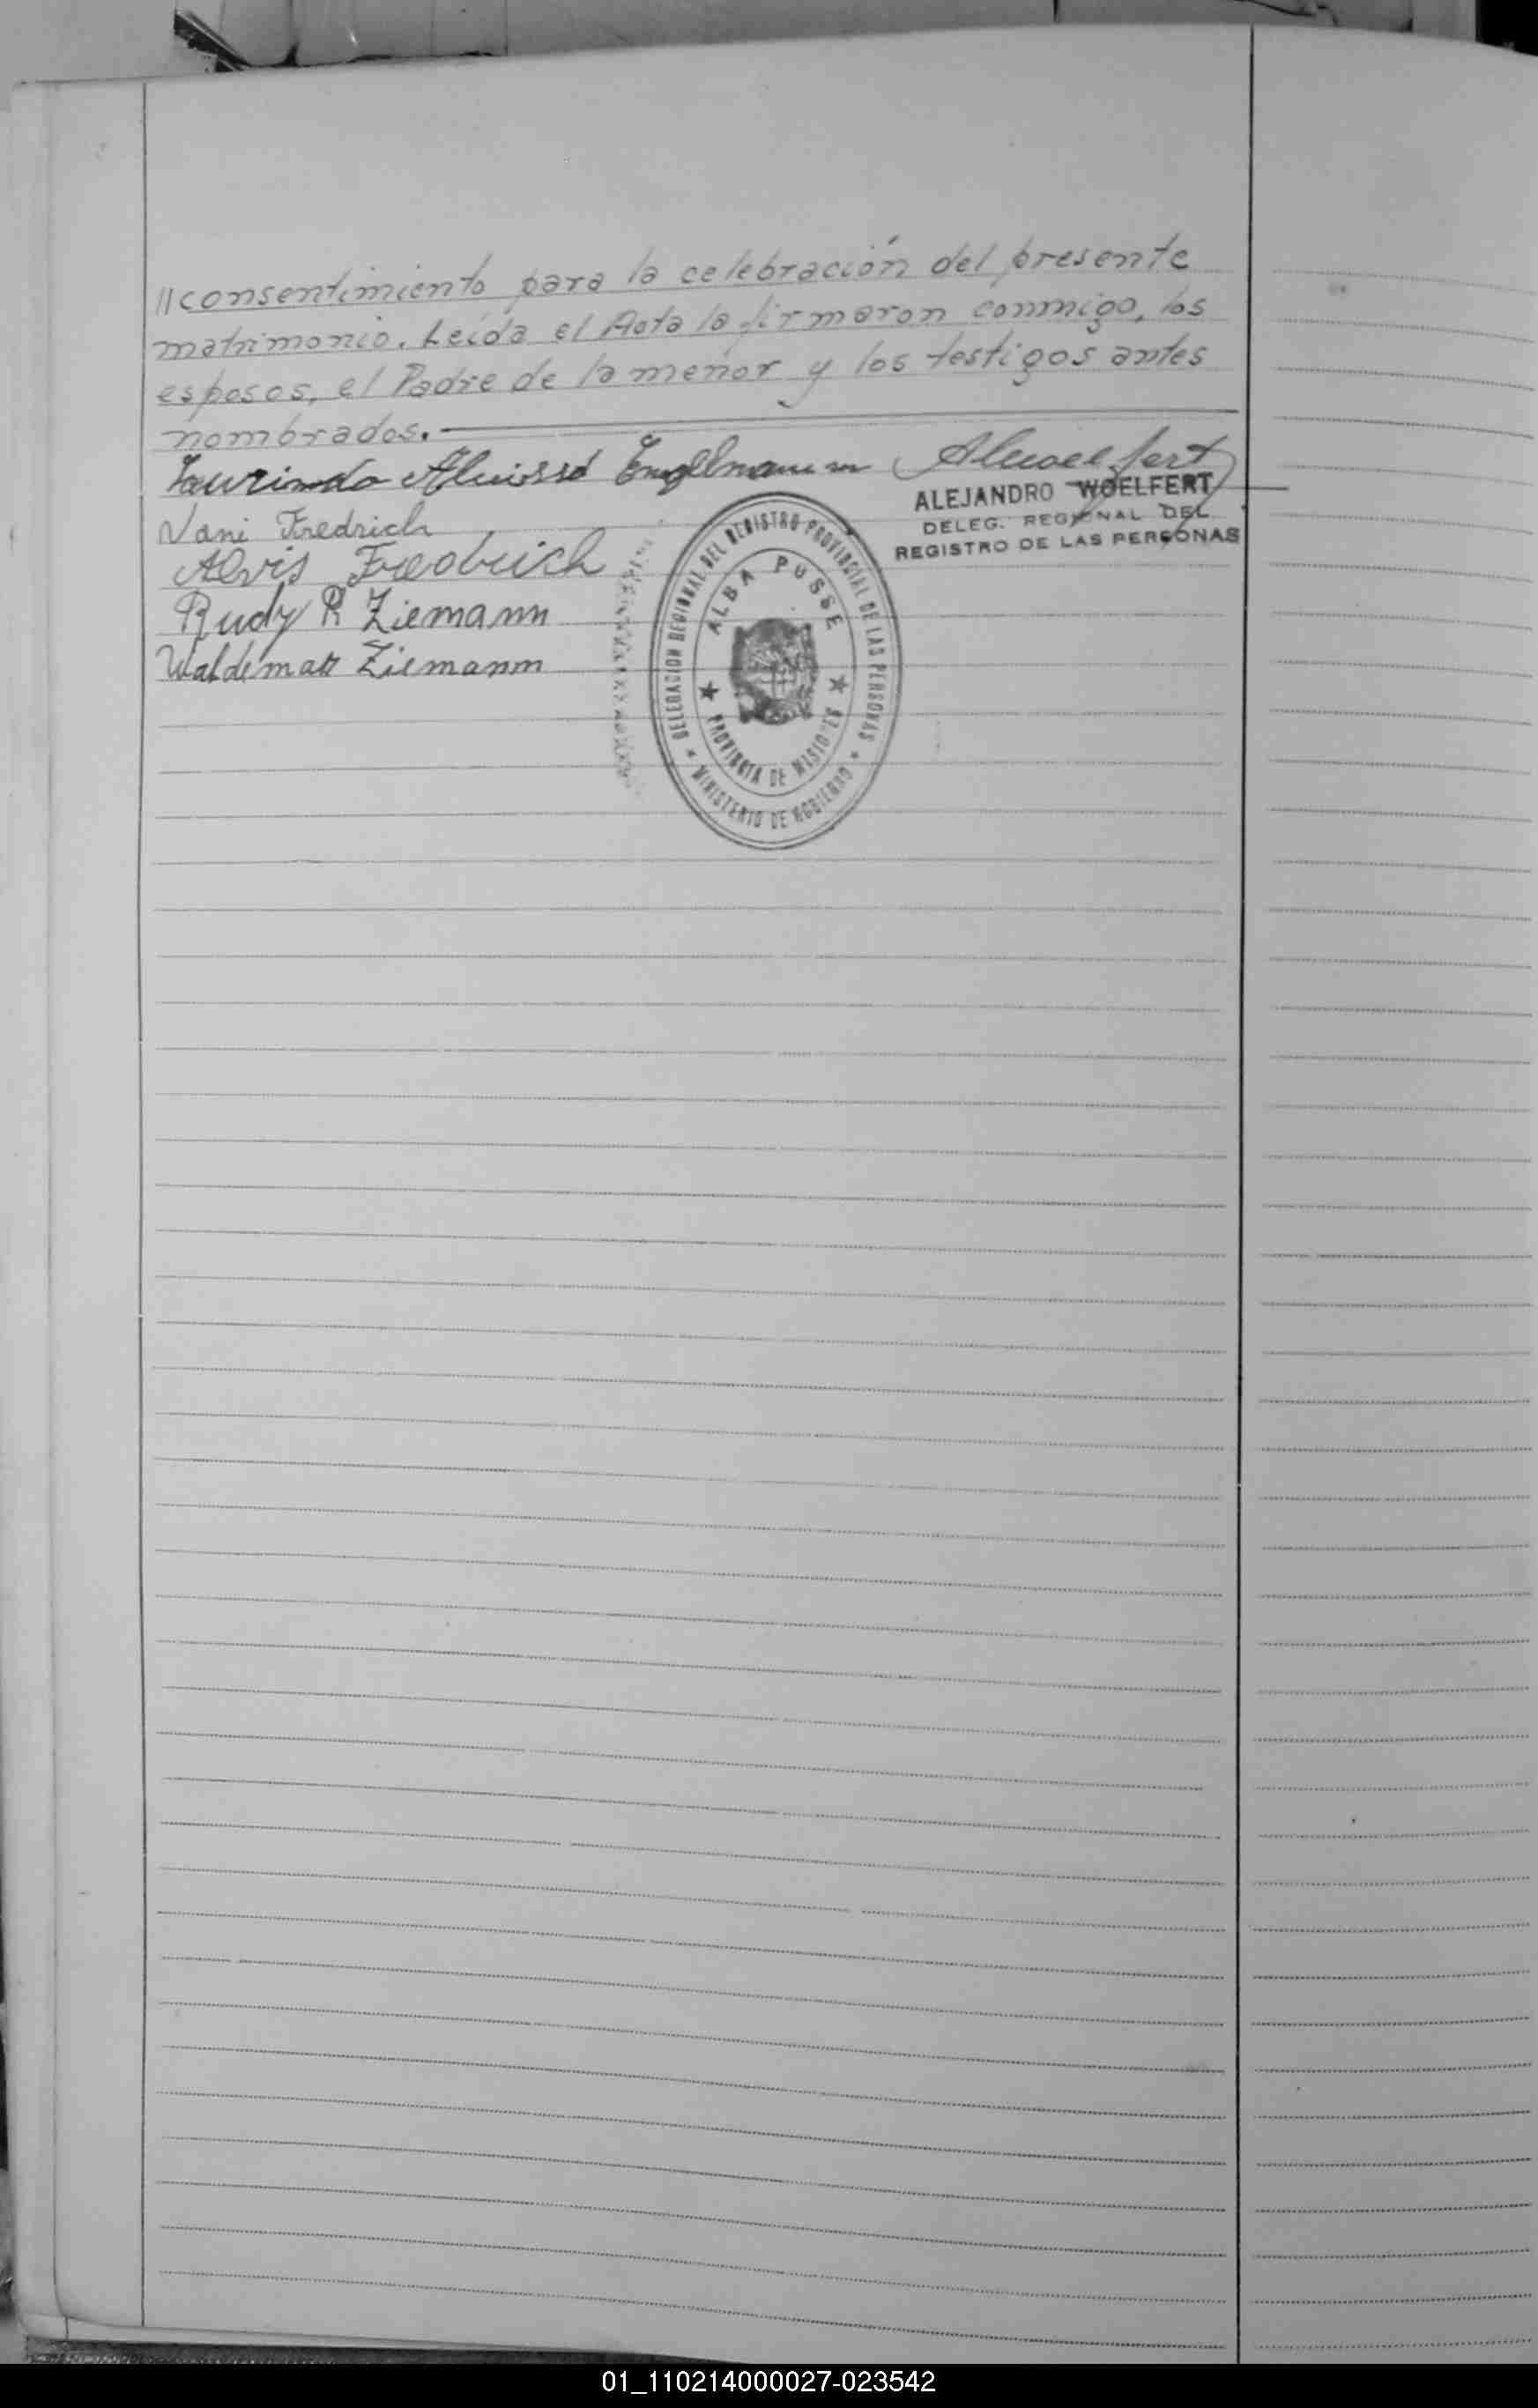 //consentimiento para la celebración del presente
matrimonio. Leída el Acta la firmaron conmigo, los
esposos, el Padre de la menor y los testigos antes
nombrados.
Laurindo Aluissé Engelmann
ALEJANDRO WOELFERT
DELEG. REGIONAL DEL
REGISTRO DE LAS PERSONAS
Vani Fredrich
Alvis Fredrich
Rudy R Ziemann
Waldemar Ziemann
DELEGACION REGIONAL DEL REGISTRO PROVINCIAL DE LAS PERSONAS
ALBA POSSE
PROVINCIA DE MISIONES
MINISTERIO DE GOBIERNO
01_110214000027-023542